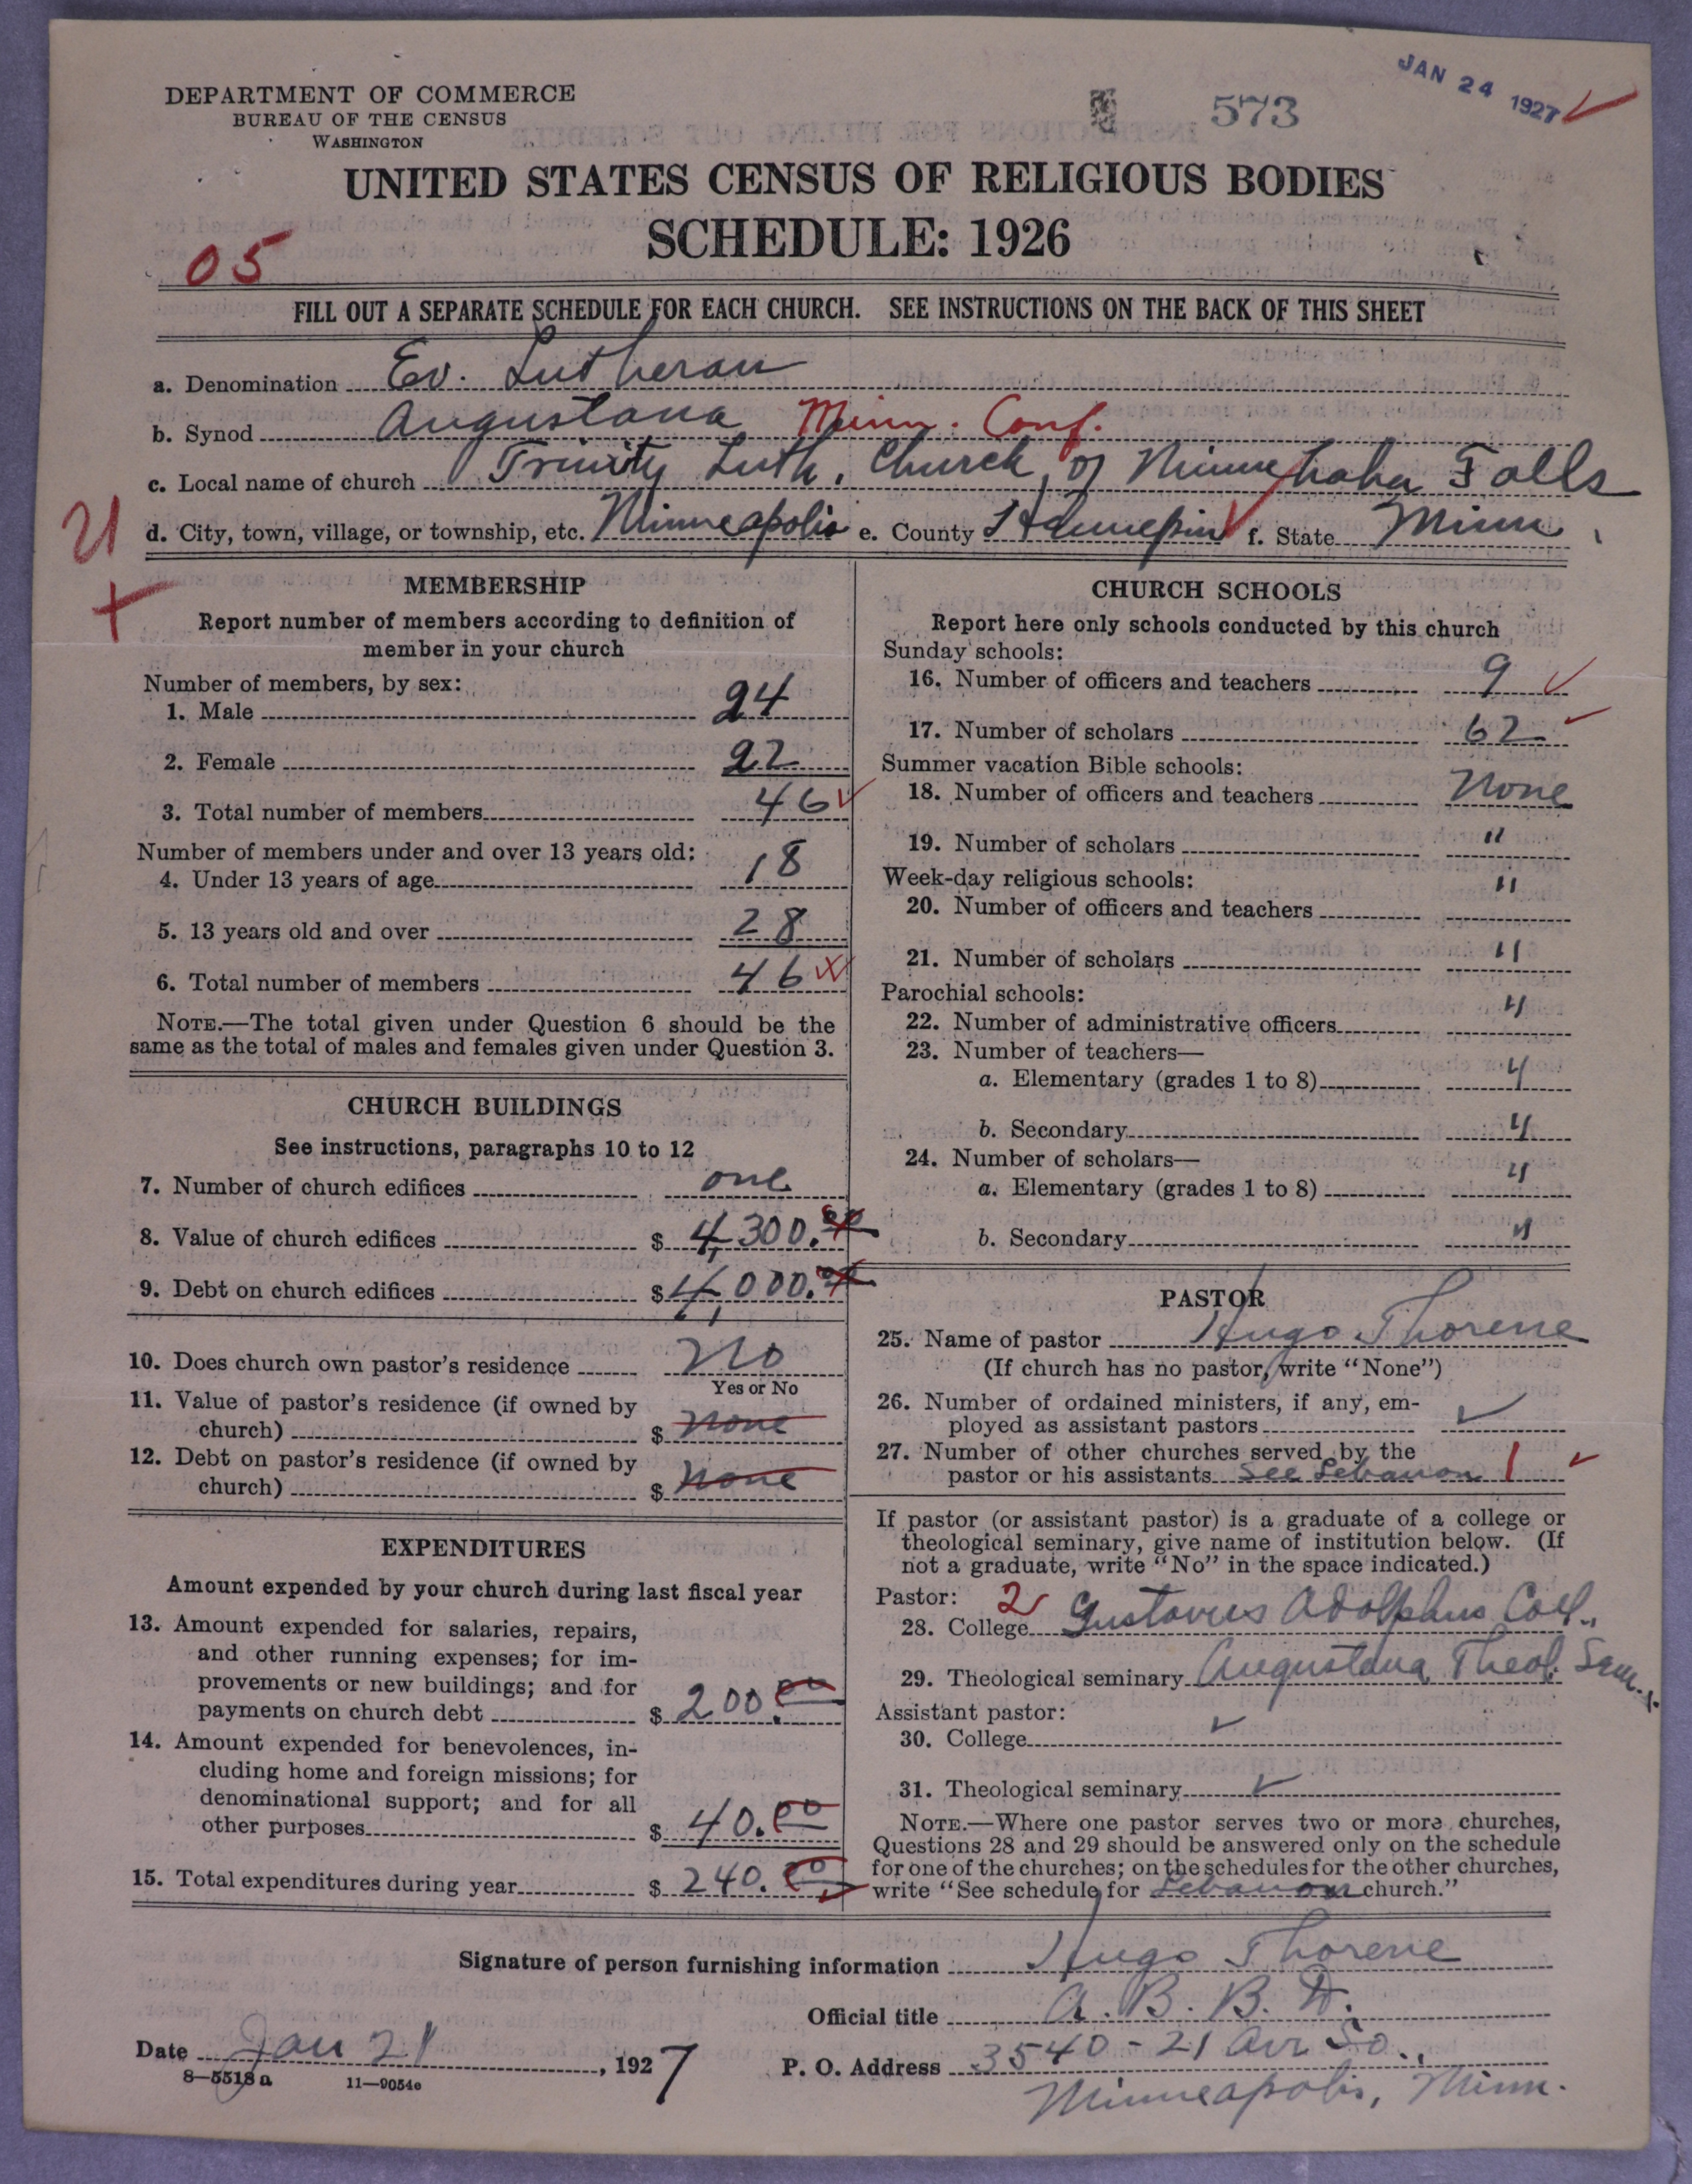 JAN 24 1927
573
DEPARTMENT OF COMMERCE
BUREAU OF THE CENSUS
WASHINGTON
UNITED STATES CENSUS OF RELIGIOUS BODIES
SCHEDULE: 1926
05
FILL OUT A SEPARATE SCHEDULE FOR EACH CHURCH. SEE INSTRUCTIONS ON THE BACK OF THIS SHEET
a. Denomination Ev. Lutheran
b. Synod Augustana Minn. Conf.
c. Local name of church Trinity Luth. Church of Minnehaha Falls
21
d. City, town, village, or township, etc. Minneapolis e. County Hennepin f. State Minn.
MEMBERSHIP
Report number of members according to definition of
member in your church
Number of members, by sex:
1. Male 24
2. Female 22
3. Total number of members 46
Number of members under and over 13 years old:
4. Under 13 years of age 18
5. 13 years old and over 28
6. Total number of members 46
NOTE.—The total given under Question 6 should be the
same as the total of males and females given under Question 3.
CHURCH BUILDINGS
See instructions, paragraphs 10 to 12
7. Number of church edifices one
8. Value of church edifices $ 4,300.00
9. Debt on church edifices $ 4,000.00
10. Does church own pastor's residence No
Yes or No
11. Value of pastor's residence (if owned by
church) $ none
12. Debt on pastor's residence (if owned by
church) $ none
EXPENDITURES
Amount expended by your church during last fiscal year
13. Amount expended for salaries, repairs,
and other running expenses; for im-
provements or new buildings; and for
payments on church debt $ 200.00
14. Amount expended for benevolences, in-
cluding home and foreign missions; for
denominational support; and for all
other purposes $ 40.00
15. Total expenditures during year $ 240.00
CHURCH SCHOOLS
Report here only schools conducted by this church
Sunday schools:
16. Number of officers and teachers 9
17. Number of scholars 62
Summer vacation Bible schools:
18. Number of officers and teachers None
19. Number of scholars "
Week-day religious schools:
20. Number of officers and teachers "
21. Number of scholars "
Parochial schools:
22. Number of administrative officers "
23. Number of teachers—
a. Elementary (grades 1 to 8) "
b. Secondary "
24. Number of scholars—
a. Elementary (grades 1 to 8) "
b. Secondary "
PASTOR
25. Name of pastor Hugo Thorene
(If church has no pastor, write "None")
26. Number of ordained ministers, if any, em-
ployed as assistant pastors ✓
27. Number of other churches served by the
pastor or his assistants See Lebanon 1
If pastor (or assistant pastor) is a graduate of a college or
theological seminary, give name of institution below. (If
not a graduate, write "No" in the space indicated.)
Pastor: 2
28. College Gustavus Adolphus Coll.,
29. Theological seminary Augustana Theol. Sem.
Assistant pastor:
30. College ✓
31. Theological seminary ✓
NOTE.—Where one pastor serves two or more churches,
Questions 28 and 29 should be answered only on the schedule
for one of the churches; on the schedules for the other churches,
write "See schedule for Lebanon church."
Signature of person furnishing information Hugo Thorene
Official title A. B. B. D.
Date Jan 21, 1927
P. O. Address 3540 - 21 Ave So.,
Minneapolis, Minn.
8—5518a 11—9054e